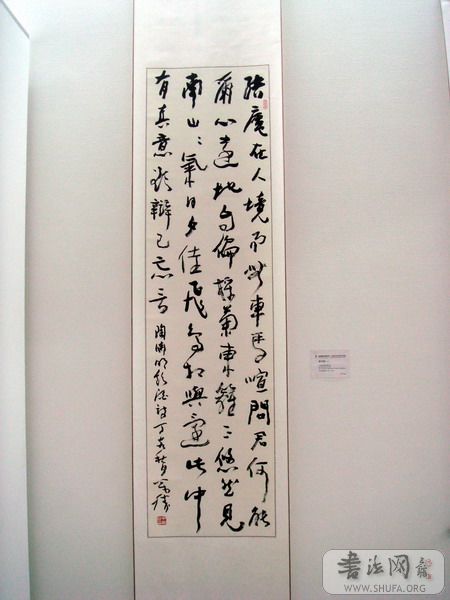 結廬在人境而無車馬喧問君何能
爾心遠地自偏採菊東籬下悠然見
南山々氣日夕佳飛鳥相與還此中
有真意欲辯已忘言 陶淵明飲酒詩丁亥秋
書法网
WWW.SHUFA.ORG